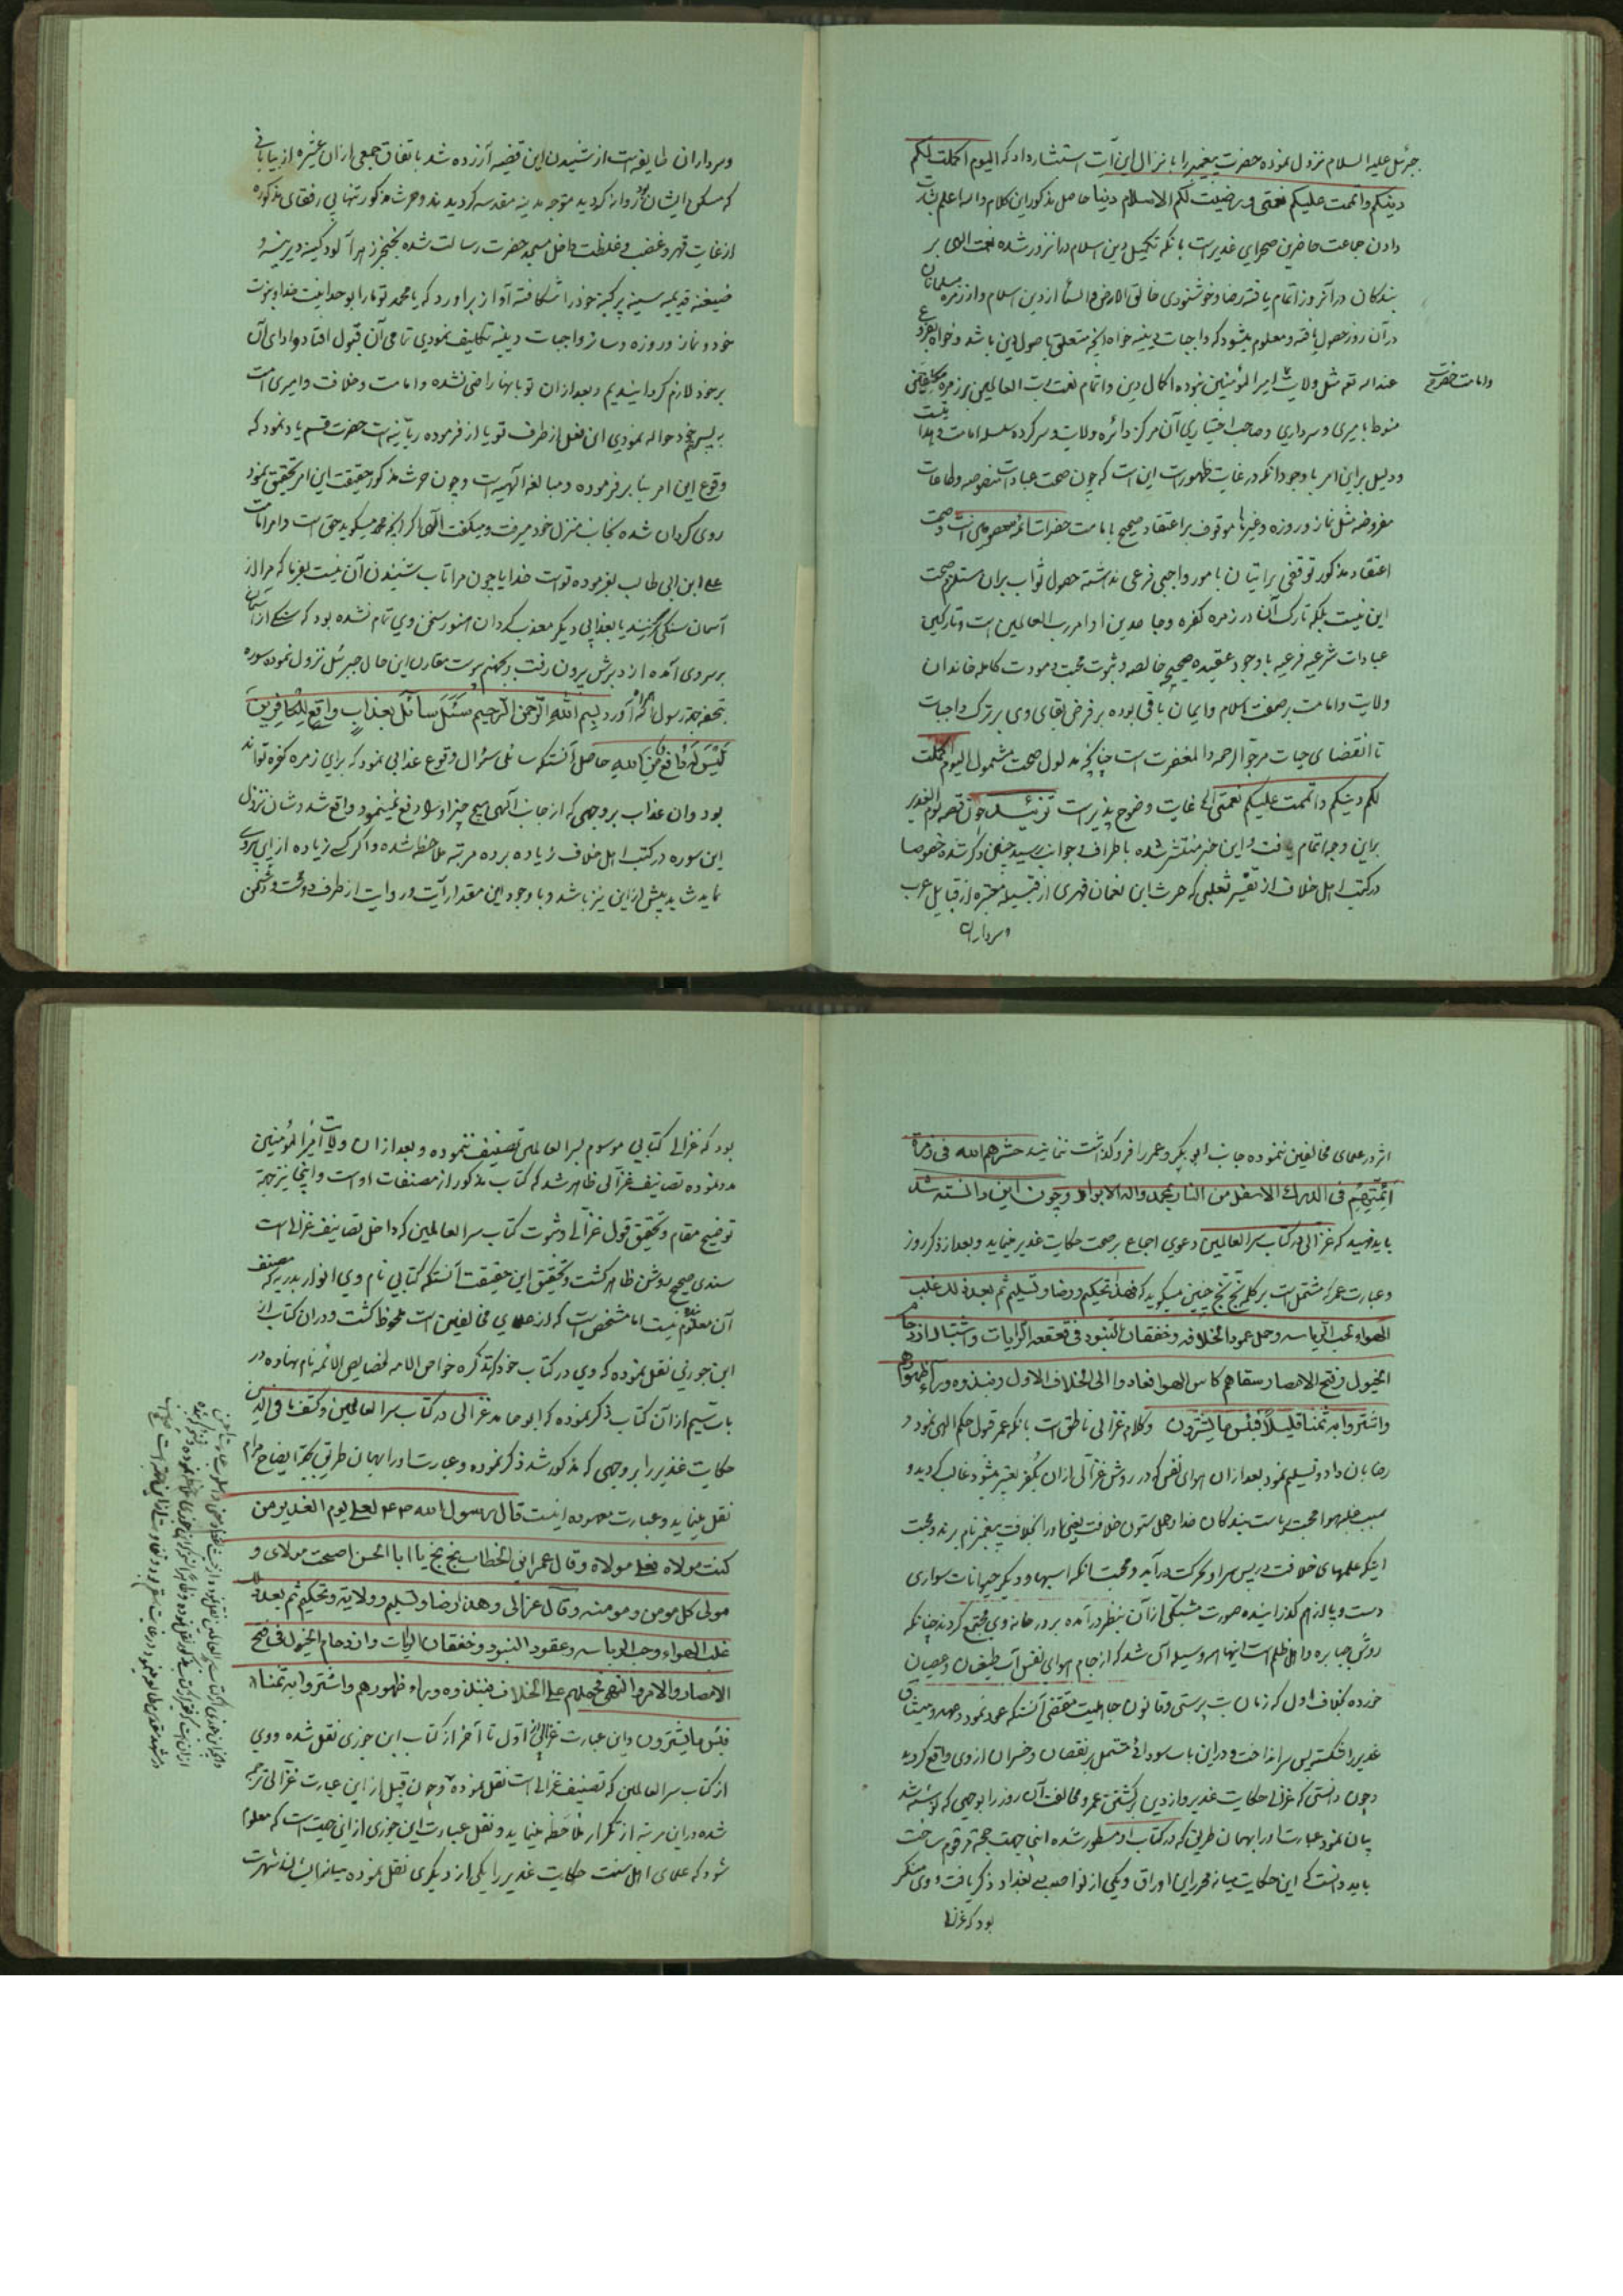 جبرئیل علیه السلام نزول نموده حضرت پیغمبر را بانزال این آیت استبشار داد که الیوم اکملت لکم
دینکم واتممت علیکم نعمتی ورضیت لکم الاسلام دینا حاصل مذکور این کلام والله اعلم بشارت
دادن جماعت حاضرین صحرای غدیرست بانکه تکمیل دین اسلام درانروز شده نعمت الهی بر
بندکان درآنروز اتمام یافته رضا وخوشنودی خالق الارض والسما از دین اسلام واز زمره مسلمانان
درآن روز حصول یافته ومعلوم میشود که واجبات دینیه خواه انچه متعلق باصول دین باشد وخواه بفروع
عندالله تعه مثل ولایت امیرالمؤمنین نبوده اکمال دین واتمام نعمت رب العالمین بر زمره مکلفین
وامامت حضرت
منوط بامیری وسرداری وصاحب اختیاری آن مرکز دائره ولایت وسرکرده سلسله امامت وهدایتست
ودلیل براین امر باوجود انکه در غایت ظهورست این است که چون صحت عبادات منصوصه وطاعات
مفروضه مثل نماز وروزه وغیرها موقوف براعتقاد صحیح بامامت حضرات ائمه معصومین است وصحت
اعتقاد مذکور توقفی براتیان بامور واجبی فرعی نداشته حصول ثواب بران مستلزم صحت
این نیست بلکه تارک آن در زمره کفره وجاحدین اوامر رب العالمین است وتارکین
عبادات شرعیه فرعیه باوجود عقیده صحیحه خالصه وثبوت محبت ومودت کامله خاندان
ولایت وامامت برصفت اسلام وایمان باقی بوده بر فرض بقای وی بر ترک واجبات
تا انقضای حیات مرجو الرحمه والمغفرت است چنانچه مدلول صحت مشمول الیوم اکملت
لکم دینکم واتممت علیکم نعمتی الخ غایت وضوح پذیرست تزئیل چون قصه یوم الغدیر
براین وجه اتمام یافت واین خبر منتشر شده باطراف وجوانب رسید چنین ذکر شده خصوصا
درکتب اهل خلاف از تفسیر ثعلبی که حرث ابن نعمان فهری از قبیله معتبره از قبایل عرب
وسرداران
وسرداران طایفه است از شنیدن این قضیه آزرده شد باتفاق جمعی ازان عشیره از بیابانی
که مسکن ایشان بود روانه کردید متوجه مدینه مقدسه کردیدند وحرث مذکور تنها بی رفقای مذکوره
از غایت قهر وغضب وغلظت داخل مسجد حضرت رسالت شده بخنجر زهر آلود کینه دیرینه و
ضغینه قدیمه سینه پرکینه خود را شکافته آواز براورد که یا محمد تو مارا بوحدانیت خدا ونبوت
خود ونماز وروزه وسائر واجبات دینیه تکلیف نمودی تمامی آن قبول افتاد وادای آن
برخود لازم کردانیدیم وبعد ازان تو بانها راضی نشده وامامت وخلافت وامیری امت
به پسر عم خود حواله نمودی این فعل از طرف تو یا از فرموده ربانیه است حضرت قسم یاد نمود که
وقوع این امر بنا بر فرموده ومبالغه الهیه است وچون حرث مذکور حقیقت این امر تحقیق نمود
روی کردان شده بجانب منزل خود میرفت ومیکفت الهی اکر انچه محمد میکوید حق است وامر امامت
علی ابن ابی طالب بفرموده توست خدایا چون مرا تاب شنیدن آن نیست بفرما که مرا از
آسمان سنکی بزنند یا بعذابی دیکر معذب کردان هنوز سخن وی تمام نشده بود که سنکی از آسمان
برسر وی آمده از دبرش بیرون رفت وبجهنم پیوست مقارن این حال جبرئیل نزول نموده سوره
تحفه جهة رسول الله آورد بسم الله الرحمن الرحیم سئل سائل بعذاب واقع للکافرین
لیس له دافع من الله حاصل آنستکه سائلی سئوال وقوع عذابی نمود که برای زمره کفره تواند
بود وان عذاب بروجهی که از جانب الهی هیچ چیز اورا دفع نمینمود واقع شد وشان نزول
این سوره در کتب اهل خلاف زیاده برده مرتبه ملاحظه شده واکر کسی زیاده از این پیروی
نماید شاید بیش از این نیز باشد وباوجود این مقدار آیت وروایت از طرف دوست ودشمن
اثر در علمای مخالفین ننموده جانب ابوبکر وعمر را فروکذاشت ننمایند حشرهم الله فی زمرة
ائمتهم فی الدرک الاسفل من النار بمحمد واله الابرار وچون این دانسته شد
باید فهمید که غزالی در کتاب سر العالمین دعوی اجماع بر صحت حکایت غدیر مینماید وبعد از ذکر روز
وعبارت عمر که مشتمل است بر کلمه بخ بخ چنین میکوید که فهذا تحکیم ورضا وتسلیم ثم بعد ذلک غلب
الهواء لحب الریاسه وحمل عمود الخلافه وخفقان البنود فی قعقعه الرایات واشتباک ازدحام
الخیول وفتح الامصار سقاهم کاس الهوا فعادوا الی الخلاف الاول ونبذوه وراء ظهورهم
واشتروا به ثمنا قلیلاً فبئس ما یشترون وکلام غزالی ناطق است بانکه عمر قبول حکم الهی نمود و
رضا بان داد وتسلیم نمود بعد ازان هوای نفس که در روش غزالی ازان بکفر تعبیر میشود غالب کردید و
بسبب غلبه هوا محبت ریاست بندکان خدا وحمل ستون خلافت یعنی اورا بخلافت پیغمبر نام برند ومحبت
اینکه علمهای خلافت در پس سر او بحرکت درآید ومحبت انکه اسبها ودیکر حیوانات سواری
دست وپا لزم کذرانیده صورت شبکی ازآن بنظر درآمده بر در خانه وی مجتمع کردند چنانکه
روش جبابره واهل ظلم است اینها همه وسیله آن شد که از جام هوای نفس آب طغیان وعصیان
خورده بخلاف اول که زمان بت پرستی وقانون جاهلیت مقتضی آنستکه عود نمود وعهد ومیثاق
غدیر را شکسته پس سر انداخت ودراین باب سودائی مشتمل بر نقصان وخسران از وی واقع کردید
وچون دانستی که غزالی حکایت غدیر واز دین برکشتن عمر ومخالفت آن روز را بوجهی که نوشته شد
بیان نمود عبارت اورا بهمان طریق که در کتاب او مسطور شده اینجا جهت حجة مرقوم ساخت
باید دانست که این حکایت میانه محرر این اوراق ویکی از نواصب بغداد ذکر یافت ووی منکر
بود که غزالی
بود که غزالی کتابی موسوم بسر العالمین تصنیف ننموده وبعد ازان ولایت امیرالمؤمنین
مدد نموده تصانیف غزالی ظاهر شد که کتاب مذکور از مصنفات اوست واینجا نیز جهة
توضیح مقام وتحقیق قول غزالی وثبوت کتاب سر العالمین که داخل تصانیف غزالی است
سندی صحیح روشن ظاهر کشت وتحقیق این حقیقت آنستکه کتابی نام وی انوار بدریه که مصنف
آن معلوم بنده نیست اما مشخص است که از علمای مخالفین است ملحوظ کشت ودران کتاب از
ابن جوزی نقل نموده که وی در کتاب خود که تذکره خواص الامه لخصایص الائمه نام نهاده در
باب سیم ازآن کتاب ذکر نموده که ابو حامد غزالی در کتاب سر العالمین وکشف ما فی الدارین
حکایت غدیر را بروجهی که مذکور شد ذکر نموده وعبارت اورا بهمان طریق بجهة ایضاح مرام
نقل مینماید وعبارت معهوده اینست قال رسول الله لعلی یوم الغدیر من
کنت مولاه فعلی مولاه وقال عمر ابن الخطاب بخ بخ یا ابا الحسن اصبحت مولای و
مولی کل مومن ومومنه وقال غزالی وهذا رضا وتسلیم وولایة وتحکیم ثم بعد ذلک
غلب الهواء وحب الریاسه وعقود البنود وخفقان الرایات وازدحام الخیول فی فتح
الامصار والامر والنهی فحملهم علی الخلاف فنبذوه وراء ظهورهم واشتروا به ثمنا
فبئس ما یشترون واین عبارت غزالی از اول تا آخر از کتاب ابن جوزی نقل شده ووی
از کتاب سر العالمین که تصنیف غزالی است نقل نموده وچون قبل از این عبارت غزالی ترجمه
شده دراین مرتبه از تکرار ملاحظه مینماید ونقل عبارت ابن جوزی از این جهت است که معلوم
شود که علمای اهل سنت حکایت غدیر را یکی از دیکری نقل نموده میانه ایشان شهرت